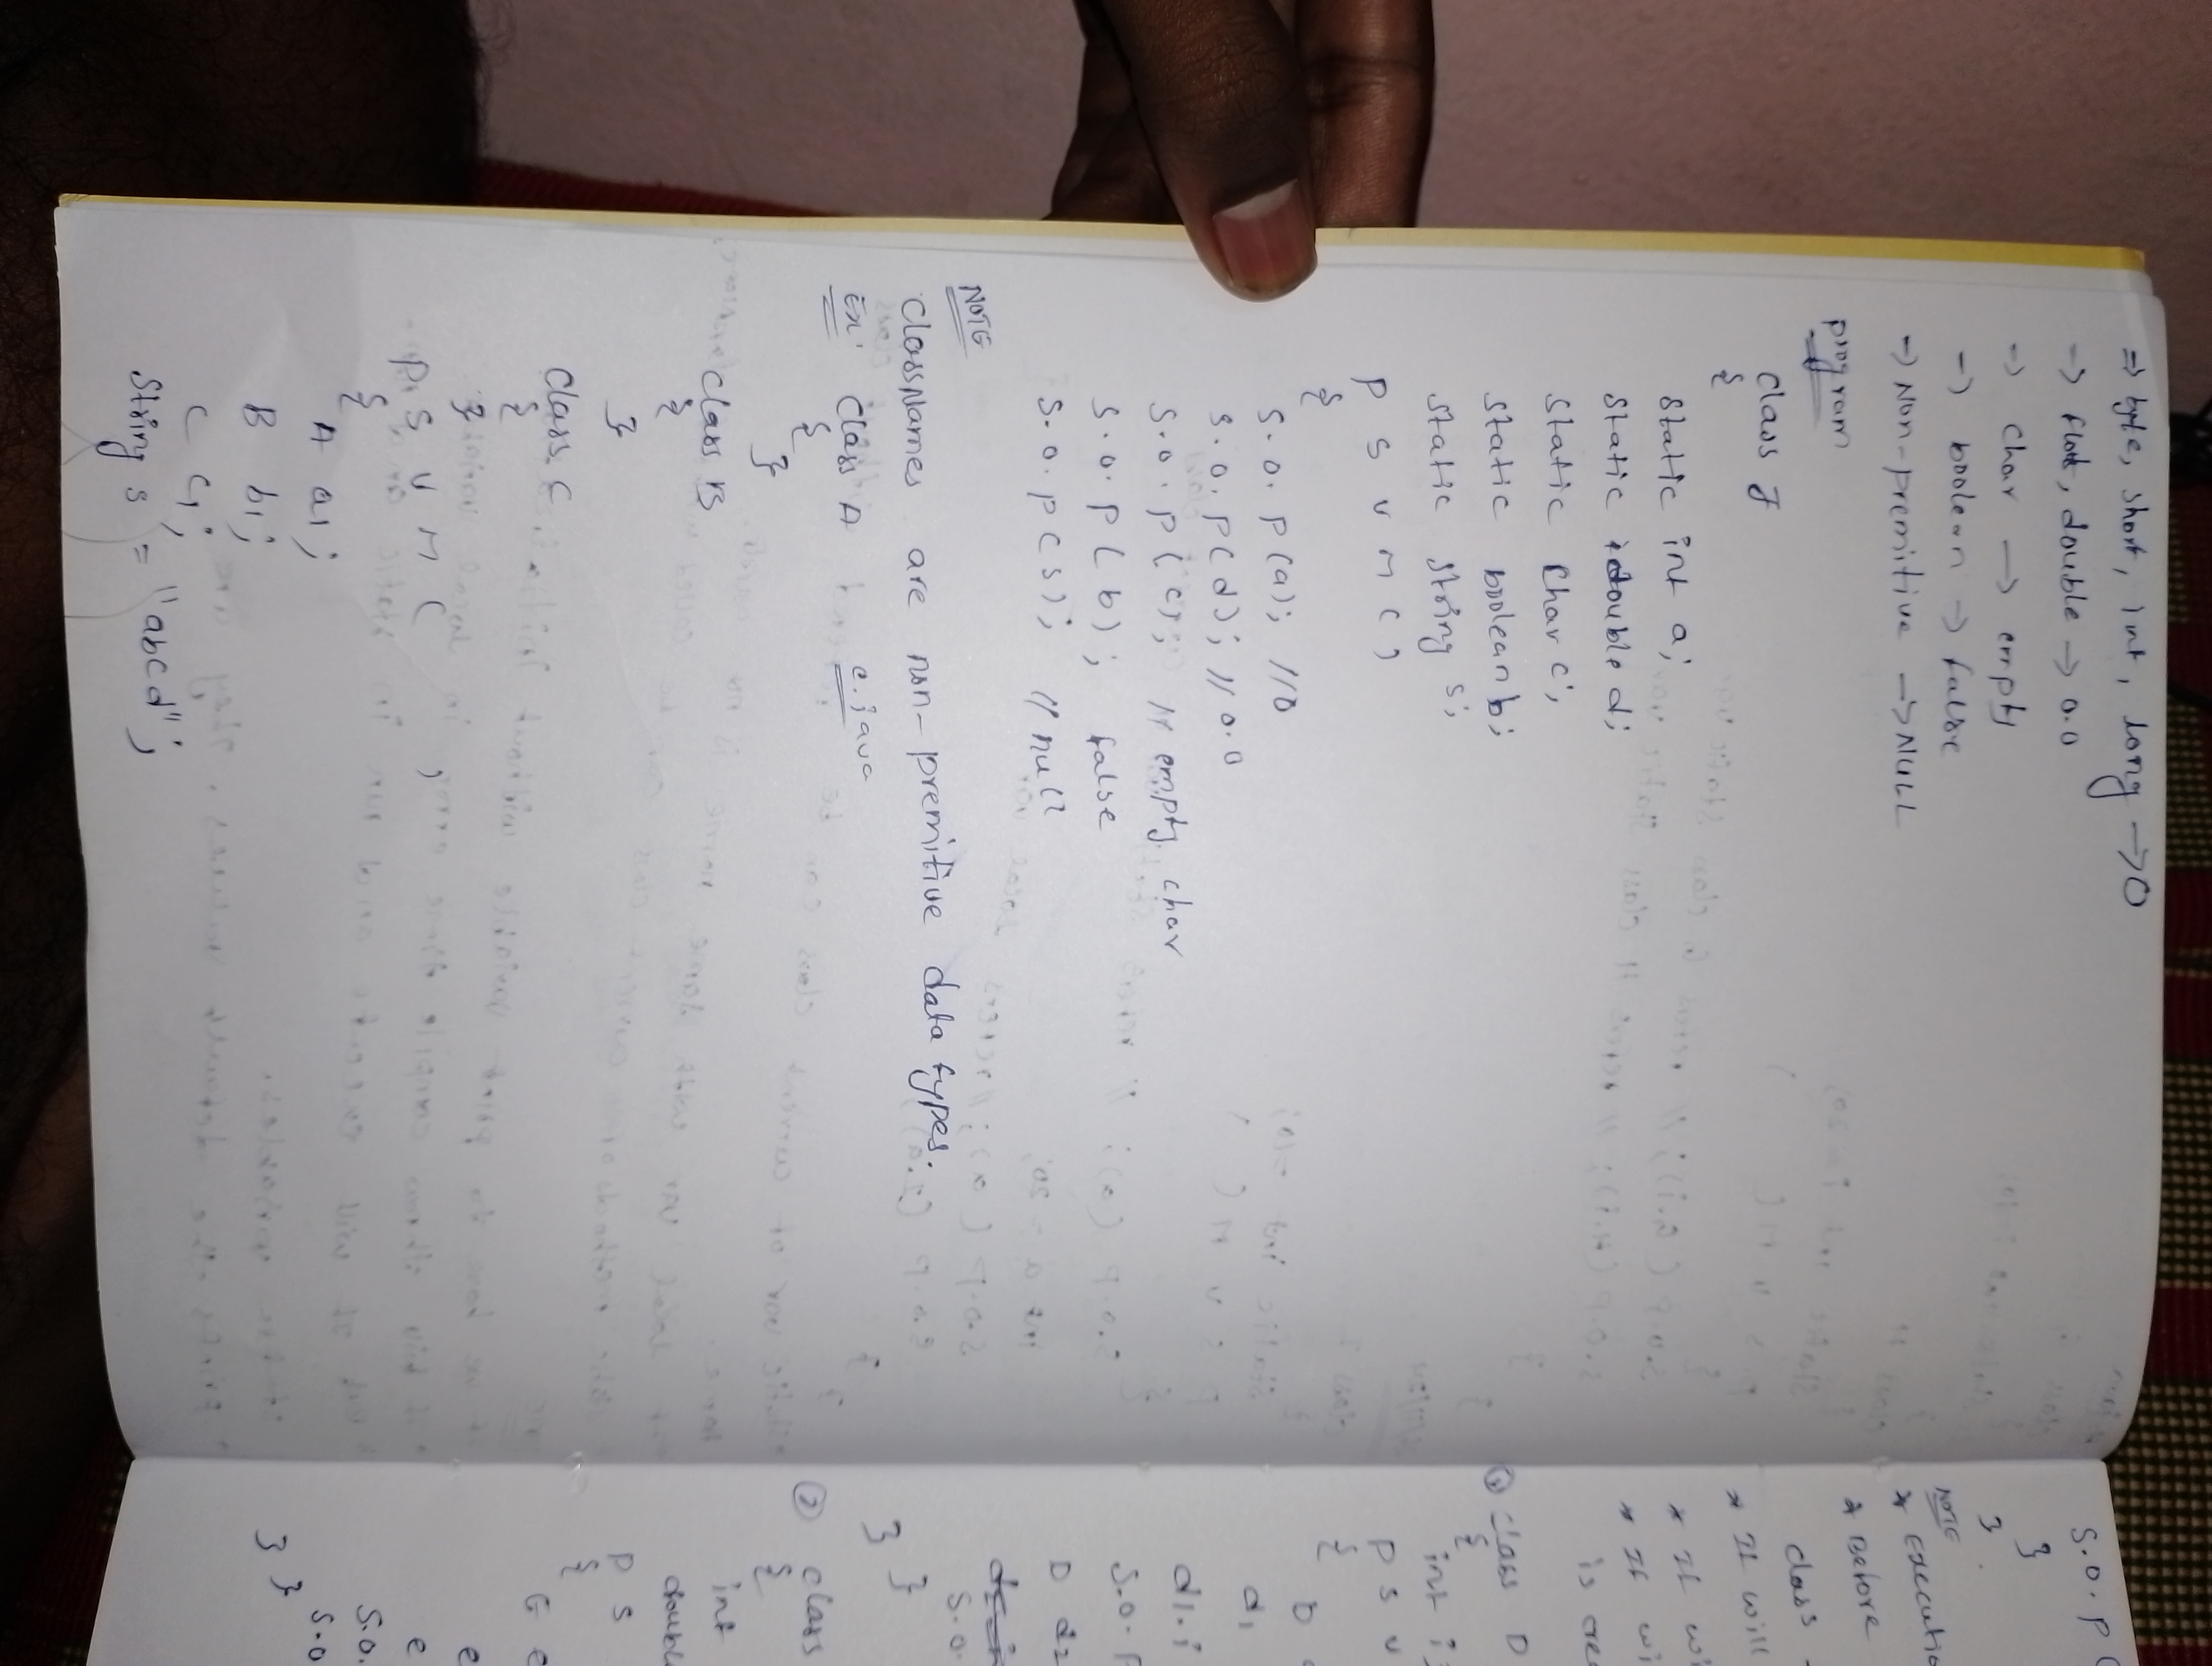 => byte, short, int, long -> 0
-> float, double -> 0.0
-> char -> empty
-> boolean -> false
-> Non-premitive -> NULL
program
class J
{
static int a;
static double d;
static char c;
static boolean b;
static string s;
P S V M ( )
{
S.O.P(a); //0
S.O.P(d); // 0.0
S.O.P(c); // empty char
S.O.P(b); false
S.O.P(s); // null
NOTE
ClassNames are non-premitive data types.
Ex: class A e.java
{
}
class B
{
}
class C
{
}
P S V M (
{
A a1;
B b1;
C c1;
String s = "abcd";
S.O.P(
}
}
NOTE
* Executio
* Before
class
* It will
* It wi
* It wi
is crea
① class D
{
int i;
P S V
{
D
d1
d1.i
S.O.P
D d2
S.O.
}
}
② class
{
int
double
P S
{
G e
e
e
S.O.
S.O
}
}